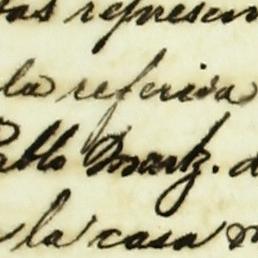 las represen
la referida
Pablo Martz. d
la casa